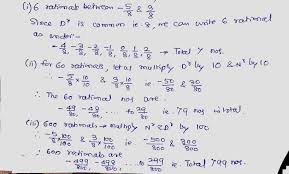 (i) 6 rationals between -5/8 & 3/8
Since Dʳ is common i.e. 8, we can write 6 rational
as under -
-4/8, -3/8, -2/8, -1/8, 0/8, 1/8, 2/8 → Total 7 nos.
(ii) for 60 rationals, let us multiply Dʳ by 10 & Nʳ by 10
∴ -5/8 × 10/10 & 3/8 × 10/10 ie -50/80 & 30/80
∴ The 60 rational nos are -
-49/80, -48/80, .... to 29/80 ie. 79 nos in total
(iii) 600 rationals → multiply Nʳ & Dʳ by 100
∴ -5/8 × 100/100 & 3/8 × 100/100 ie -500/800 & 300/800
∴ 600 rationals are
-499/800, -498/800, ... to 299/800 ie. Total 799 nos.